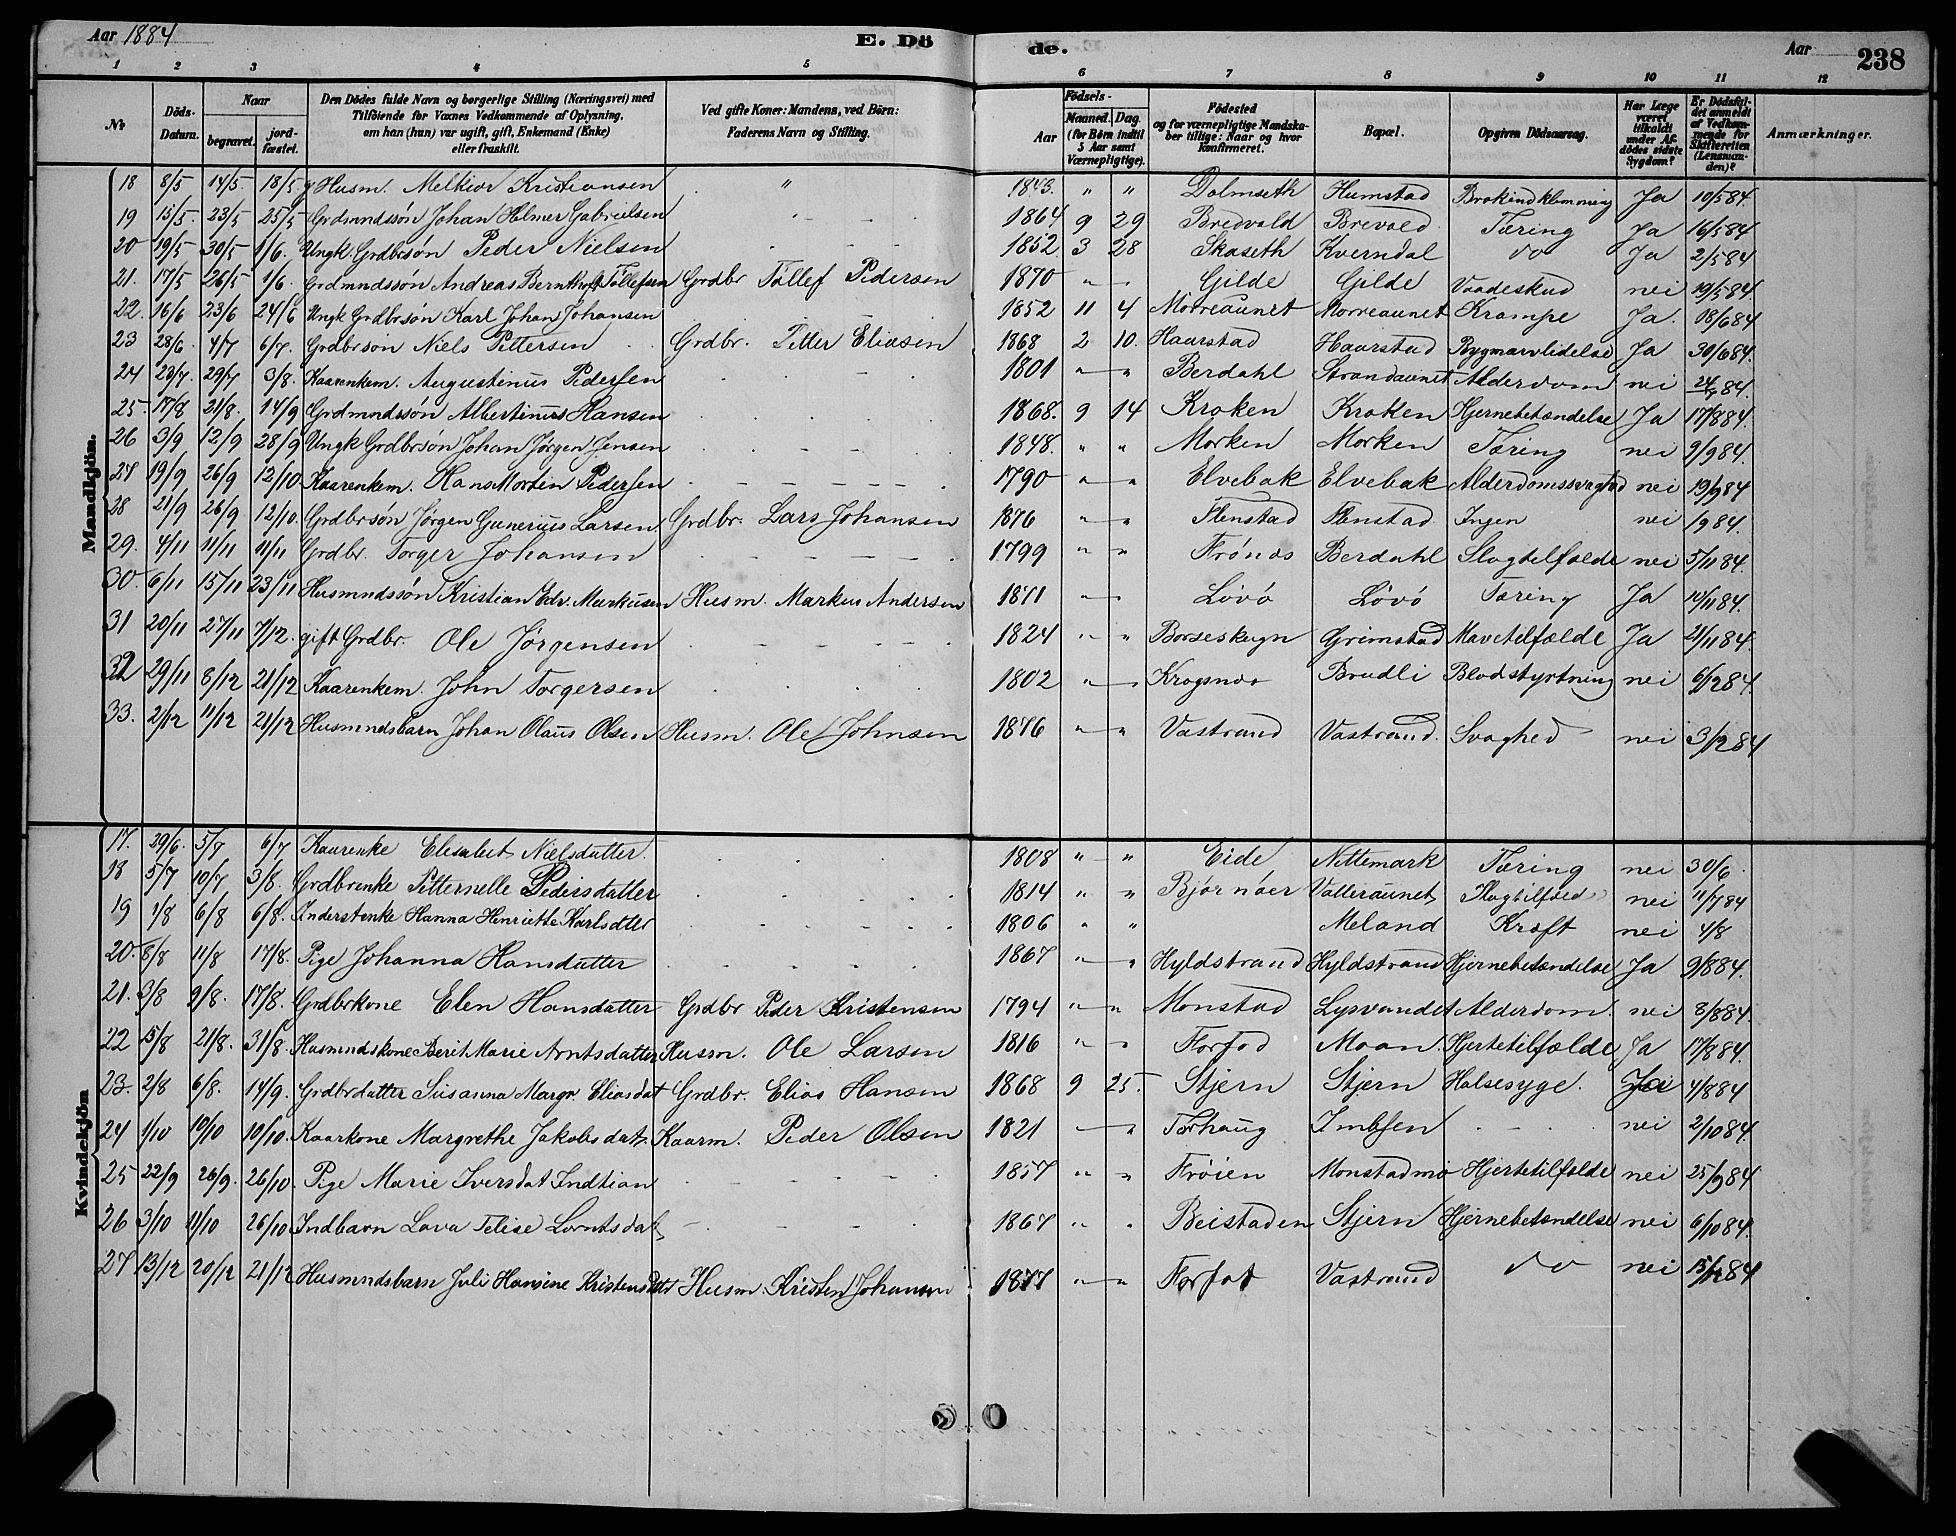 Aar 1884 E. Dö de. Aar 238
1 2 3 4 5 6 7 8 9 10 11 12
No Döds-Datum. Naar begravet. jord-fæstet. Den Dödes fulde Navn og borgerlige Stilling (Næringsvei) med Tilföiende for Voxnes Vedkommende af Oplysning, om han (hun) var ugift, gift, Enkemand (Enke) eller fraskilt. Ved gifte Koner: Mandens, ved Børn: Faderens Navn og Stilling. Födsels- Aar Maaned. Dag. (for Børn indtil 5 Aar samt Værnepligtige). Födested og for værnepligtige Mandskaber tillige: Naar og hvor konfirmeret. Bopæl. Opgiven Dödsaarsag. Har Læge været tilkaldt under Afdödes sidste Sygdom? Er Dödsfaldet anmeldt af Vedkommende for Skifteretten (Lensmanden)? Anmærkninger.
Mandkjön.
18 8/5 14/5. 18/5 g Husm. Melkior Kristiansen " 1843. " " Dolmseth Humstad Brokindklemning Ja 10/5 84
19 15/5. 23/5 25/5 Grdmndssön Johan Holmer Gabrielsen 1864 9 29 Bredvold Brevold Tæring Ja 16/5 84
20 19/5 30/5 1/6. Ungk. Grdbrsön Peder Nielsen 1852 3 28 Skaseth Kverndal do Ja 2/5 84
21. 17/5 26/5 1/6. Grdmndssön Andreas Bernthoft Tollefsen Grdbr Tollef Pedersen 1870 " Gilde Gilde Vaadeskud nei 19/5 84.
22. 16/6 23/6 24/6 Ungk Grdbrsön Karl Johan Johansen 1852 11 4 Morreaunet Morreaunet Krampe Ja. 18/6 84
23 28/6. 4/7 6/7. Grdbrson Niels Pettersen Grdbr. Petter Eliasen 1868 2 10. Haarstad Haarstad Rygmarvlidelse Ja 30/6 84.
24 23/7. 29/7 3/8. Kaarenkem. Augustinus Pedersen 1801 " " Berdahl Strandaunet Alderdom nei 24/7 84.
25. 17/8 21/8. 14/9 Grdmndssön Albertinus Hansen 1868. 9 14 Kroken Kroken Hjernebetændelse Ja 17/8 84.
26 3/9 12/9 28/9 Ungk Grdbrsön Johan Jörgen Jensen 1848. " " Morken Morken Tæring nei 9/9 84.
27 19/9 26/9 12/10. Kaarenkem. Hans Morten Pedersen 1790 " " Elvebak Elvebak Alderdomssvaghed nei 19/9 84
28 21/9 26/9 12/10. Grdbrsön Jörgen Gunerius Larsen Grdbr. Lars Johansen 1876 " " Flenstad Flenstad Ingen nei 19 84.
29. 4/11 11/11 11/11 Grdbr. Torger Johansen 1799 " " Frönes Berdahl Slagtilfælde nei 5/11 84.
30. 6/11 15/11 23/11 Husmndssön Kristian Edv. Markusen Husm. Markus Andersen 1871 " Lövö Lövö Tæring Ja 10/11 84.
31 20/11 27/11 7/12. gift Grdbr. Ole Jörgensen 1824 " " Borseskogn Grimstad Mavetilfælde Ja 21/11 84.
32 29/11 8/12 21/12 Kaarenkem. John Torgersen 1802 " Krogsnes Bradli Blodstyrtning nei 6/12 84.
33. 2/12 11/12 21/12 Husmndsbarn Johan Olaus Olsen Husm. Ole Johnsen 1876 " " Vastrand Vastrand. Svaghed nei 3/12 84
Kvindekjön
17. 29/6. 5/7 6/7 Kaarenke Elesabet Nielsdatter. 1808 " " Eide Nettemark Tæring nei 30/6.
18 5/7 10/7 3/8. Grdbrenke Petternelle Pedersdatter 1814 " " Bjørnöer Valleraunet Slagtilfæld nei 11/7 84
19 1/8 6/8 6/8. Inderstenke Hanna Henriette Karlsdtter 1806 " " Meland Kræft nei 4/8
20. 8/8 11/8 17/8. Pige Johanna Hansdatter 1867 " " Hyldstrand Hyldstrand Hjernebetændelse Ja 9/8 84.
21. 3/8 9/8. 17/8. Grdbrkone Elen Hansdatter Grdbr Peder Kristensen 1794 " " Monstad Lysvandet Alderdom. nei 8/8 84.
22 15/8 21/8. 31/8 Husmndskone Berit Marie Arntsdatter Husm. Ole Larsen 1816 " " Forfod Moan. Hjertetilfælde Ja 17/8 84.
23. 2/8 6/8. 14/9. Grdbrdatter Susanna Margr Eliasdat Grdbr. Elias Hansen 1868 9 25. Stjern Stjern Halsesyge. Ja 4/8 84
24 1/10 10/10 10/10. Kaarkone Margrethe Jakobsdat. Kaarm. Peder Olsen 1821 " Torhaug Imbsen nei 2/10 84.
25 22/9 26/9. 26/10. Pige Marie Iversdat Indtian 1857 " " Fröien Monstadmo Hjertetilfælde nei 25/9 84
26 3/10 11/10 26/10 Indbarn Lava Telise Lorntsdat 1867 " " Beistaden Stjern Hjernebetændelse nei 6/10 84.
27 13/12 20/12 21/12 Husmndsbarn Juli Hansine Kristensdtr Husm. Kristen Johansen 1877 " " Forfot Vastrand do nei 15/12 84